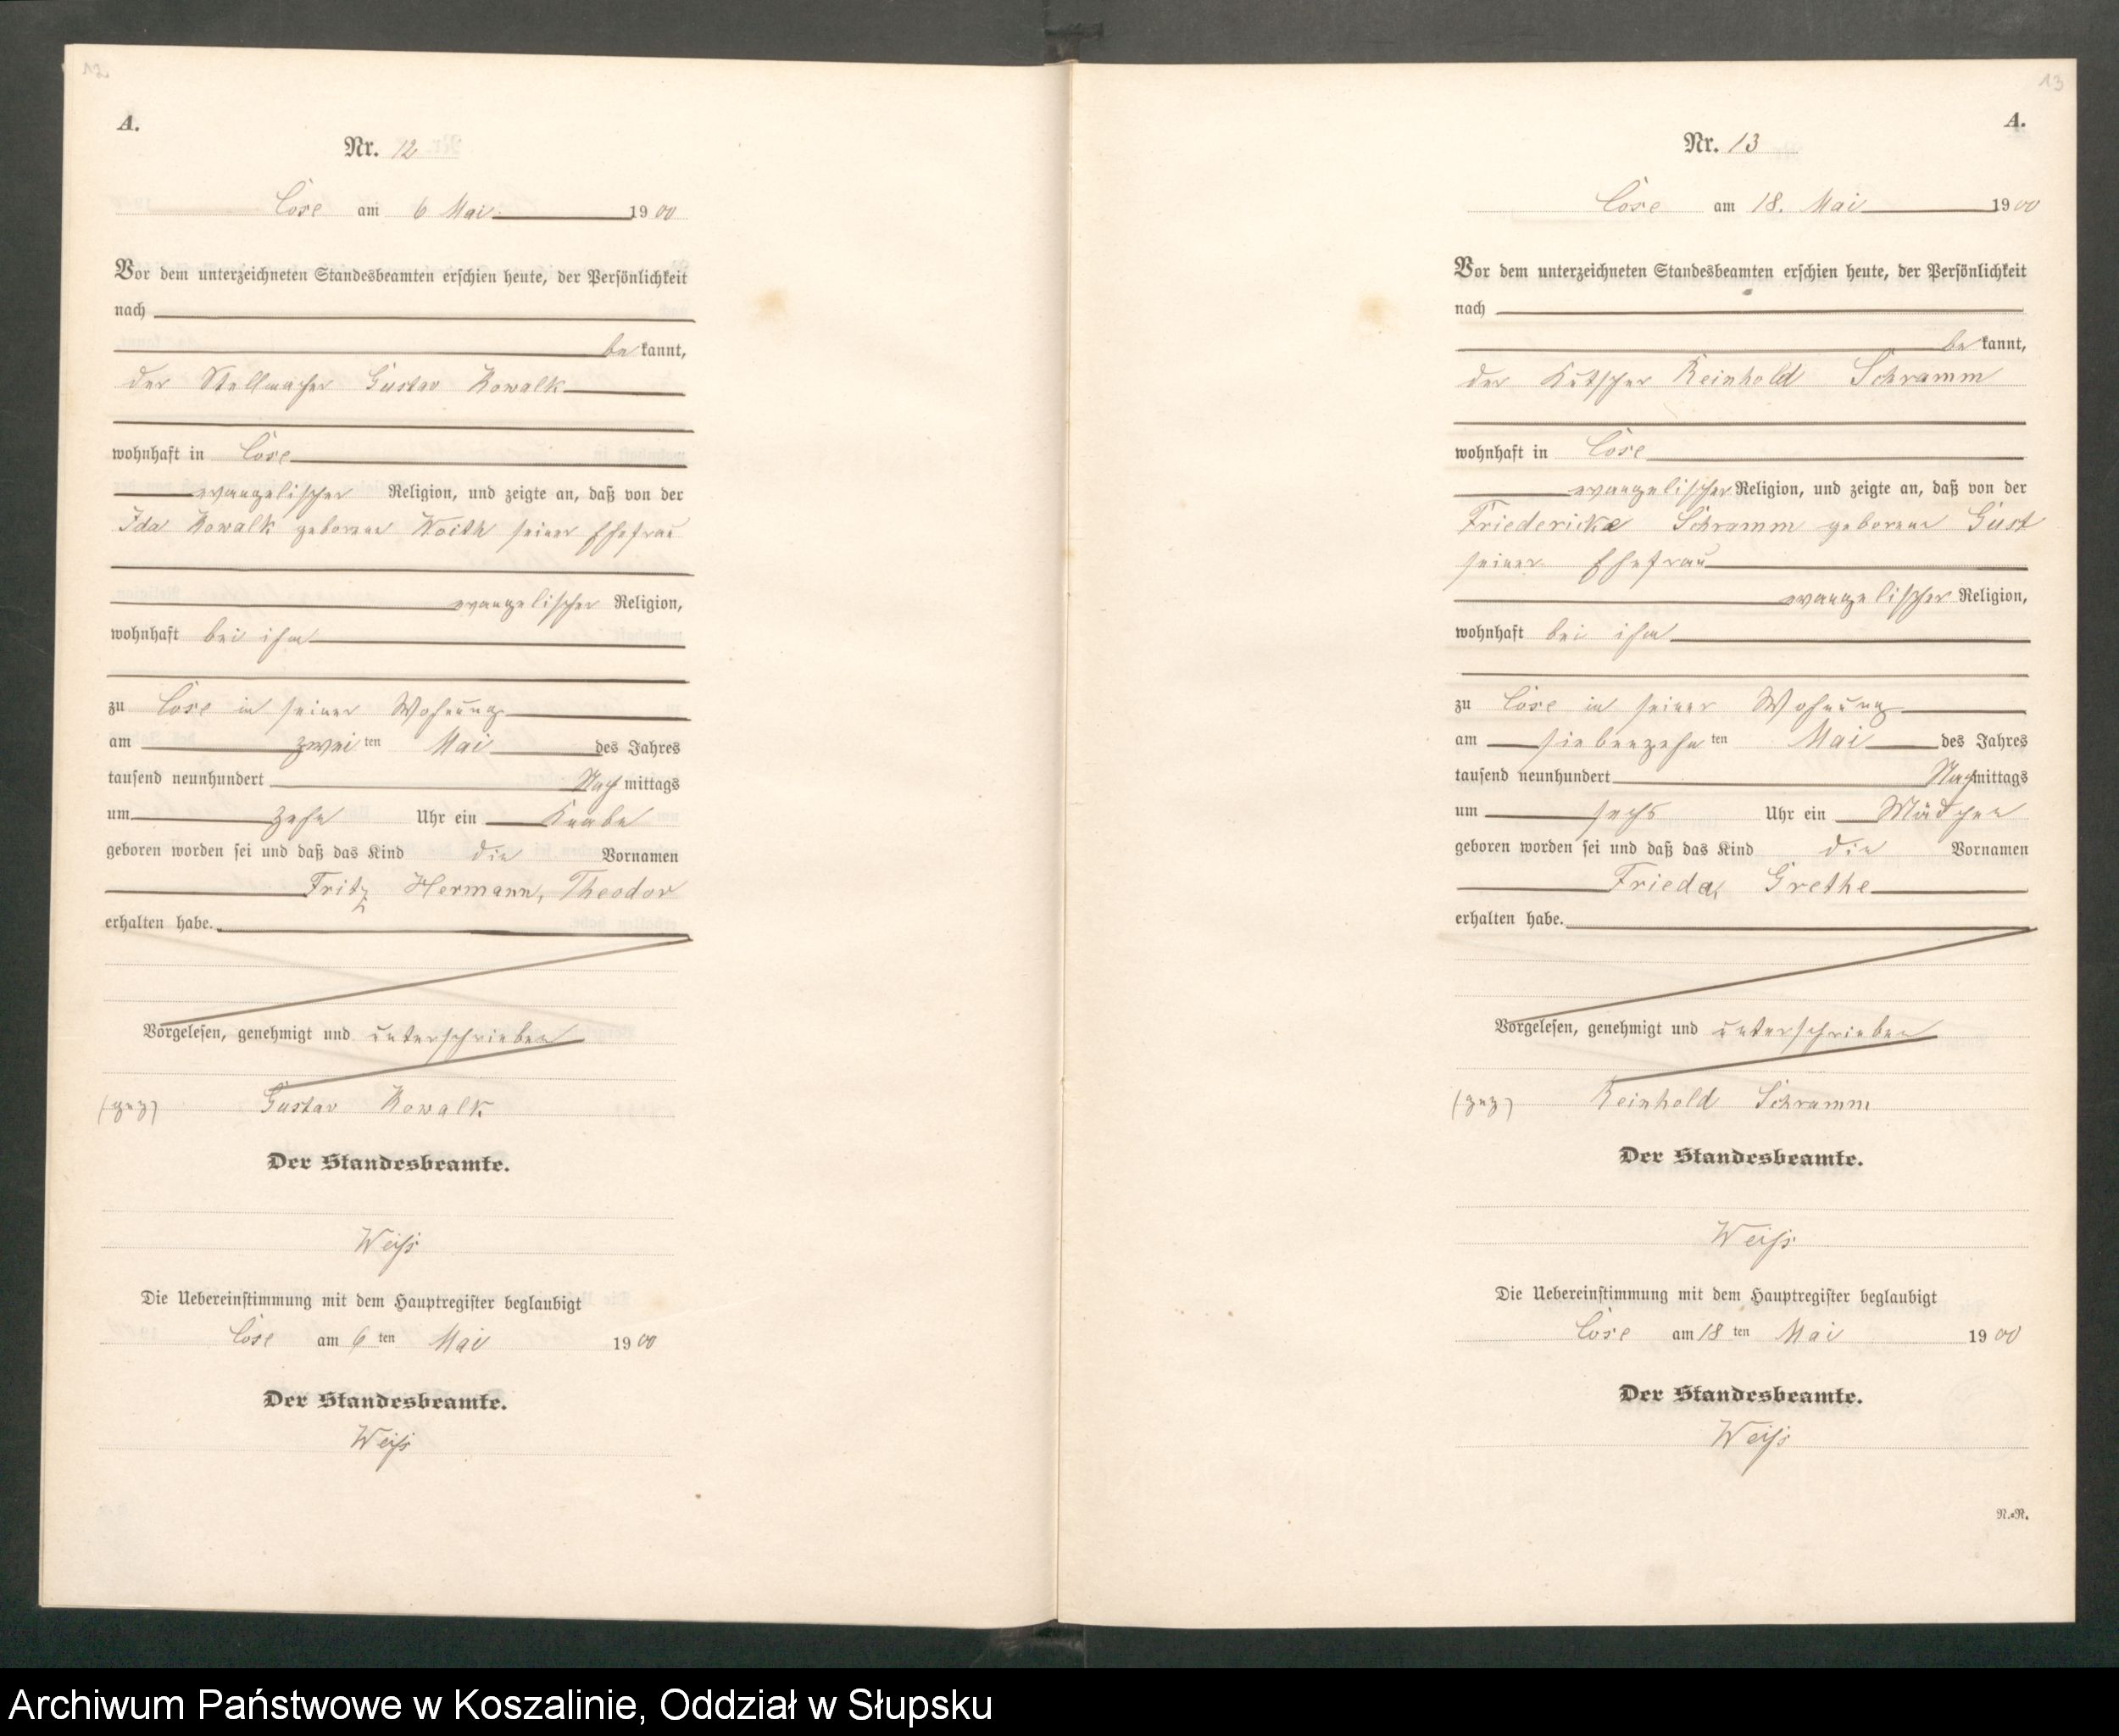 12
A.
Nr. 12
Cose am 6 Mai 1900
Vor dem unterzeichneten Standesbeamten erschien heute, der Persönlichkeit
nach
bekannt,
der Stellmacher Gustav Kowalk
wohnhaft in Cose
evangelischer Religion, und zeigte an, daß von der
Ida Kowalk geborene Woith seiner Ehefrau
evangelischer Religion,
wohnhaft bei ihm
zu Cose in seiner Wohnung
am zweiten Mai des Jahres
tausend neunhundert Nachmittags
um zehn Uhr ein Knabe
geboren worden sei und daß das Kind die Vornamen
Fritz, Hermann, Theodor
erhalten habe.
Vorgelesen, genehmigt und unterschrieben
(gez) Gustav Kowalk
Der Standesbeamte.
Weiß
Die Uebereinstimmung mit dem Hauptregister beglaubigt
Cose am 6ten Mai 1900
Der Standesbeamte.
Weiß
13
A.
Nr. 13
Cose am 18. Mai 1900
Vor dem unterzeichneten Standesbeamten erschien heute, der Persönlichkeit
nach
bekannt,
der Kutscher Reinhold Schramm
wohnhaft in Cose
evangelischer Religion, und zeigte an, daß von der
Friedericke Schramm geborene Gust
seiner Ehefrau
evangelischer Religion,
wohnhaft bei ihm
zu Cose in seiner Wohnung
am siebenzehnten Mai des Jahres
tausend neunhundert Nachmittags
um sechs Uhr ein Mädchen
geboren worden sei und daß das Kind die Vornamen
Frieda, Grethe
erhalten habe.
Vorgelesen, genehmigt und unterschrieben
(gez) Reinhold Schramm
Der Standesbeamte.
Weiß
Die Uebereinstimmung mit dem Hauptregister beglaubigt
Cose am 18ten Mai 1900
Der Standesbeamte.
Weiß
R.-R.
Archiwum Państwowe w Koszalinie, Oddział w Słupsku